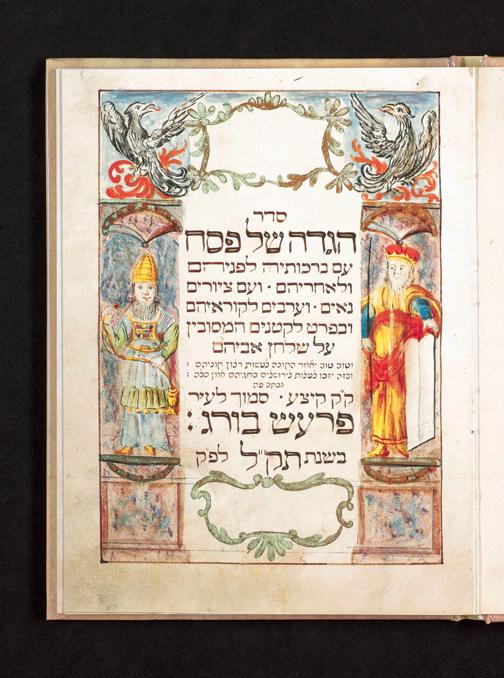 סדר
הגדה של פסח
עם ברכותיה לפניהם
ולאחריהם · ועם ציורים
נאים · וערבים לקוראיהם
ובפרט לקטנים המסובין
על שלחן אביהם
וטוב טוב יאמר הקונה
נכתב פה
ק"ק קיצע · סמוך לעיר
פרעש בורג :
בשנת תק"ל לפ"ק